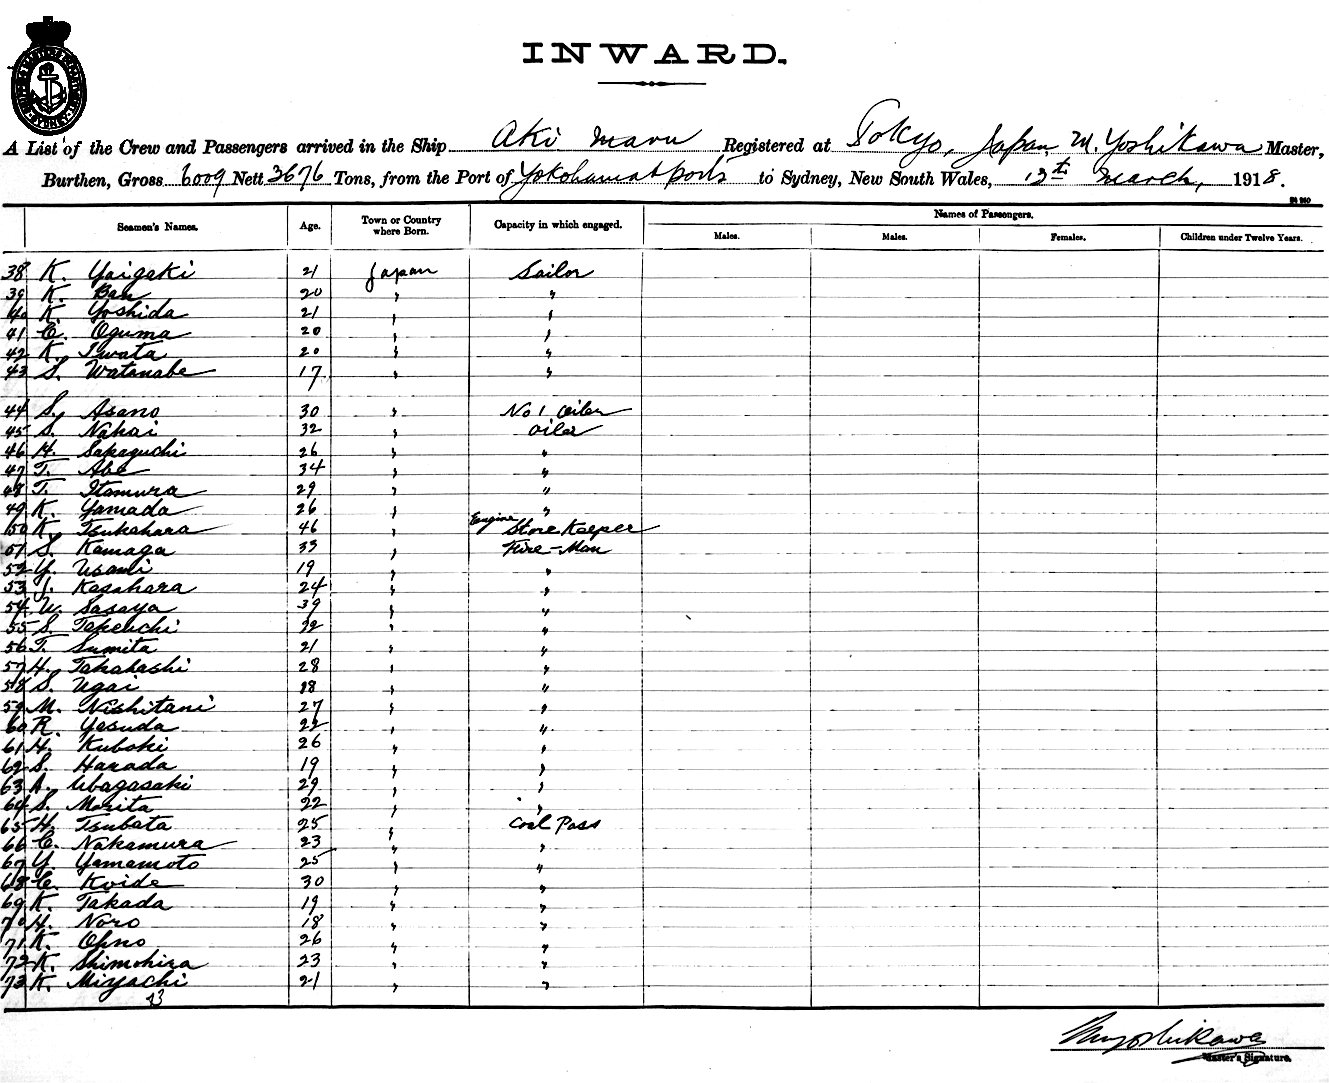 INWARD.
A List of the Crew and Passengers arrived in the Ship Aki Maru Registered at Tokyo, Japan, M. Yoshikawa Master,
Burthen, Gross 6009 Nett 3676 Tons, from the Port of Yokohama & ports to Sydney, New South Wales, 13th March, 1918.
Seamen's Names. Age. Town or Country where Born. Capacity in which engaged. Names of Passengers.
Males. Males. Females. Children under Twelve Years.
38 K. Yaigaki 21 Japan Sailor
39 K. Ban 20 " "
40 K. Yoshida 21 " "
41 C. Oguma 20 " "
42 K. Iwata 20 " "
43 S. Watanabe 17 " "
44 S. Asano 30 " No 1 Oiler
45 S. Nakai 32 " Oiler
46 H. Sakaguchi 26 " "
47 T. Abe 34 " "
48 T. Itamura 29 " "
49 K. Yamada 26 " "
50 K. Tsukahara 46 " Engine Store Keeper
51 S. Kamaga 33 " Fire-Man
52 Y. Usami 19 " "
53 J. Kasahara 24 " "
54 U. Sasaya 39 " "
55 S. Takeuchi 22 " "
56 T. Sumita 21 " "
57 H. Takahashi 28 " "
58 S. Ugai 18 " "
59 M. Nishitani 27 " "
60 R. Yasuda 22 " "
61 H. Kuboki 26 " "
62 S. Harada 19 " "
63 A. Ubagasaki 29 " "
64 S. Morita 22 " "
65 H. Tsubata 25 " Coal Pass
66 C. Nakamura 23 " "
67 Y. Yamamoto 25 " "
68 C. Koide 30 " "
69 K. Takada 19 " "
70 H. Noro 18 " "
71 K. Ohno 26 " "
72 K. Shimohira 23 " "
73 K. Miyachi 21 " "
73
M Yoshikawa
Master's Signature.